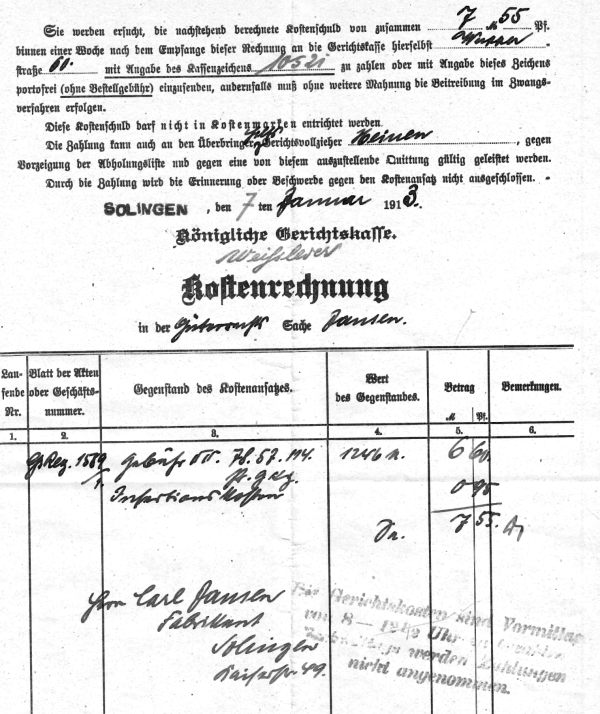 Sie werden ersucht, die nachstehend berechnete Kostenschuld von zusammen 7 M 55 Pf.
binnen einer Woche nach dem Empfange dieser Rechnung an die Gerichtskasse hierselbst Wupper-
straße 60. mit Angabe des Kassenzeichens 10521 zu zahlen oder mit Angabe dieses Zeichens
portofrei (ohne Bestellgebühr) einzusenden, andernfalls muß ohne weitere Mahnung die Beitreibung im Zwangs-
verfahren erfolgen.
Diese Kostenschuld darf nicht in Kostenmarken entrichtet werden.
Die Zahlung kann auch an den Überbringer, Gerichtsvollzieher Heinen, gegen
Vorzeigung der Abholungsliste und gegen eine von diesem auszustellende Quittung gültig geleistet werden.
Durch die Zahlung wird die Erinnerung oder Beschwerde gegen den Kostenansatz nicht ausgeschlossen.
SOLINGEN, den 7 ten Januar 1913.
Königliche Gerichtskasse.
Kostenrechnung
in der Güterrechts Sache Jansen.
Lau-
fende
Nr.
Blatt der Akten
oder Geschäfts-
nummer.
Gegenstand des Kostenansatzes.
Wert
des Gegenstandes.
Betrag
M Pf.
Bemerkungen.
1. 2. 3. 4. 5. 6.
Gebühr 78. 57. 114. 6 60.
Pr. GKG.
Insertionskosten 0 95
Sa. 7 55.
Herrn Carl Jansen
Fabrikant
Solingen
Kaiserstr. 49.
Die Gerichtskosten sind Vormittags
von 8–12½ Uhr
werden Zahlungen
nicht angenommen.